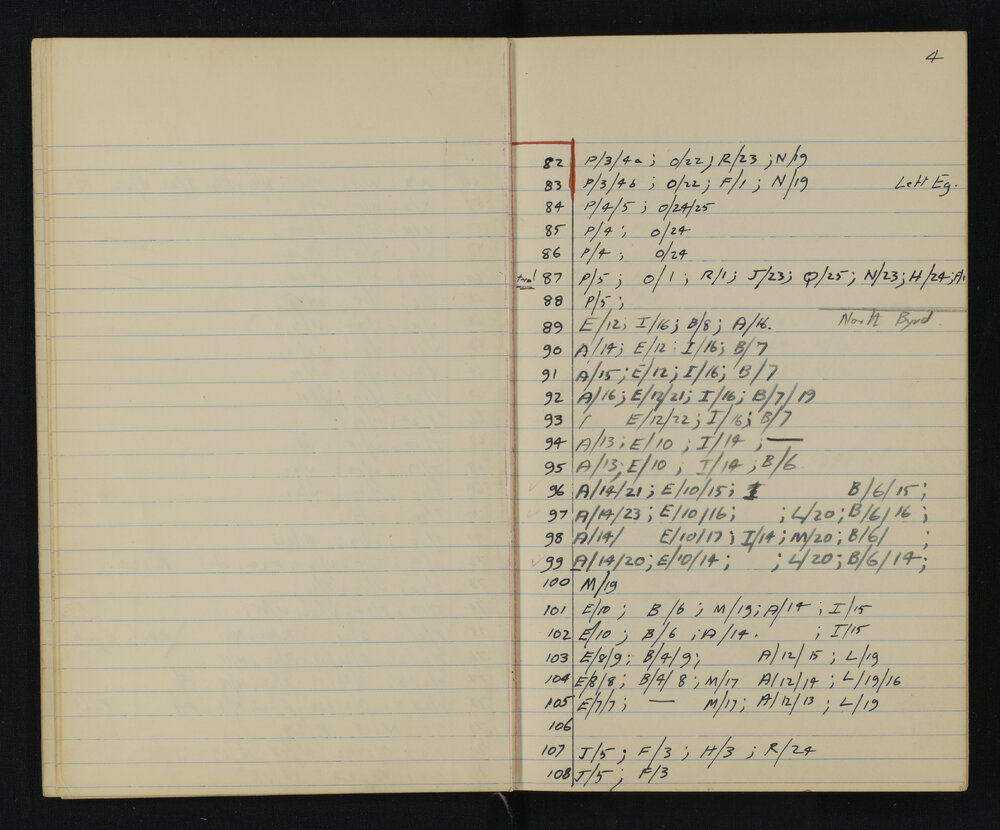 4
82 P/3/4a ; O/22 ; R/23 ; N/19
83 P/3/4b ; O/22 ; F/1 ; N/19 Left Eg.
84 P/4/5 ; O/24/25
85 P/4 ; O/24
86 P/4 ; O/24
87 P/5 ; O/1 ; R/1 ; J/23 ; Q/25 ; N/23 ; H/24 ; A1
88 P/5 ;
89 E/12 ; I/16 ; B/8 ; A/16. North Byrd.
90 A/14 ; E/12 ; I/16 ; B/7
91 A/15 ; E/12 ; I/16 ; B/7
92 A/16 ; E/12/21 ; I/16 ; B/7/19
93 E/12/22 ; I/16 ; B/7
94 A/13 ; E/10 ; I/14 ; —
95 A/13 ; E/10 ; I/14 ; B/6
96 A/14/21 ; E/10/15 ; I B/6/15 ;
97 A/14/23 ; E/10/16 ; ; L/20 ; B/6/16 ;
98 A/14/ E/10/17 ; I/14 ; M/20 ; B/6/ ;
99 A/14/20 ; E/10/14 ; ; L/20 ; B/6/14 ;
100 M/19
101 E/10 ; B/6 ; M/19 ; A/14 ; I/15
102 E/10 ; B/6 ; A/14. ; I/15
103 E/8/9 ; B/4/9 ; A/12/15 ; L/19
104 E/8/8 ; B/4/8 ; M/17 A/12/14 ; L/19/16
105 E/7/7 ; — M/17 ; A/12/13 ; L/19
106
107 J/5 ; F/3 ; H/3 ; R/24
108 J/5 ; F/3